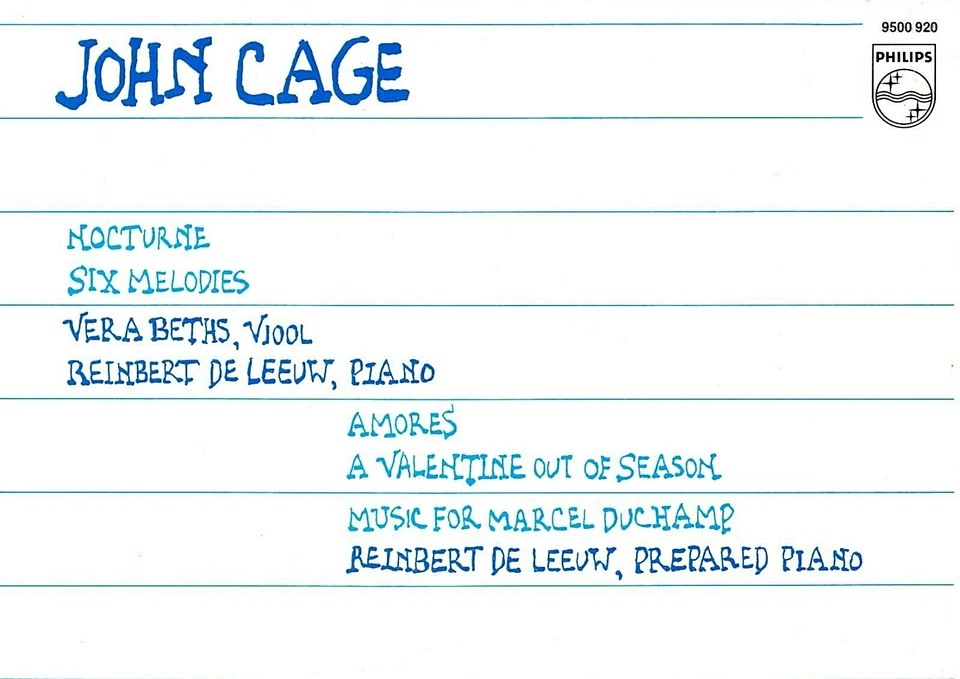 9500 920
JOHN CAGE
PHILIPS
NOCTURNE
SIX MELODIES
VERA BETHS, VIOOL
REINBERT DE LEEUW, PIANO
AMORES
A VALENTINE OUT OF SEASON
MUSIC FOR MARCEL DUCHAMP
REINBERT DE LEEUW, PREPARED PIANO